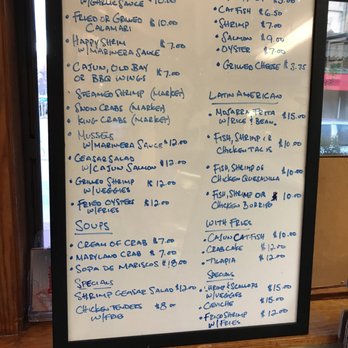 w/Garlic Sauce $10.00
• Fried or Grilled $10.00
Calamari
• Happy Shrim $7.00
w/Marinera Sauce
• Cajun, Old Bay
or BBQ Wings $7.00
• Steamed Shrimp (Market)
• Snow Crabs (Market)
• King Crabs (Market)
• Mussels
w/Marinera Sauce $12.00
• Ceasar Salad
w/Cajun Salmon $12.00
• Grilled Shrimp $12.00
w/Veggies
• Fried Oysters $12.00
w/Fries
Soups
• Cream of Crab $7.00
• Maryland Crab $7.00
• Sopa de Mariscos $18.00
Specials
Shrimp Ceasar Salad $12.00
Chicken Tenders $8.00
Catfish $6.50
• Shrimp $7.00
• Salmon $9.00
• Oyster $7.00
• Grilled Cheese $3.75
Latin American
• Mojarra Frita $15.00
w/Rice & Bean
• Fish, Shrimp or $10.00
Chicken Tacis
• Fish, Shrimp or $10.00
Chicken Quesadilla
• Fish, Shrimp or $10.00
Chicken Borrito
With Fries
• Cajun Catfish $10.00
• Crab Cake $12.00
• Tilapia $12.00
Specials
Shrimp & Scallops $15.00
w/Veggies
• Ceviche $15.00
• Fried Shrimp $12.00
w/Fries